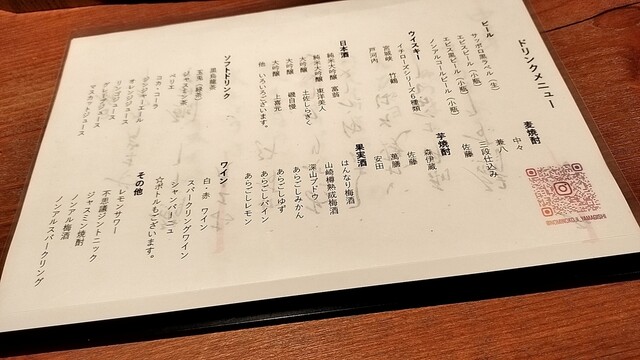 ドリンクメニュー
ビール
サッポロ黒ラベル（生）
エビスビール（小瓶）
エビス黒ビール（小瓶）
ノンアルコールビール（小瓶）
ウイスキー
イチローズシリーズ6種類
宮城峡　竹鶴
戸河内
日本酒
純米大吟醸　富翁
純米大吟醸　東洋美人
大吟醸　土佐しらぎく
大吟醸　磯自慢
大吟醸　上喜元
他　いろいろございます。
ソフトドリンク
黒烏龍茶
玉兎（緑茶）
ジャスミン茶
ペリエ
コカ・コーラ
ジンジャーエール
オレンジジュース
リンゴジュース
マスカットジュース
麦焼酎
中々
兼八
三段仕込み
佐藤
芋焼酎
森伊蔵
佐藤
萬膳
安田
果実酒
はんなり梅酒
山崎樽熟成梅酒
深山ブドウ
あらごしみかん
あらごしゆず
あらごしパイン
あらごしレモン
ワイン
白・赤　ワイン
スパークリングワイン
シャンパーニュ
☆ボトルもございます。
その他
レモンサワー
不思議ジントニック
ジャスミン焼酎
ノンアル梅酒
ノンアルスパークリング